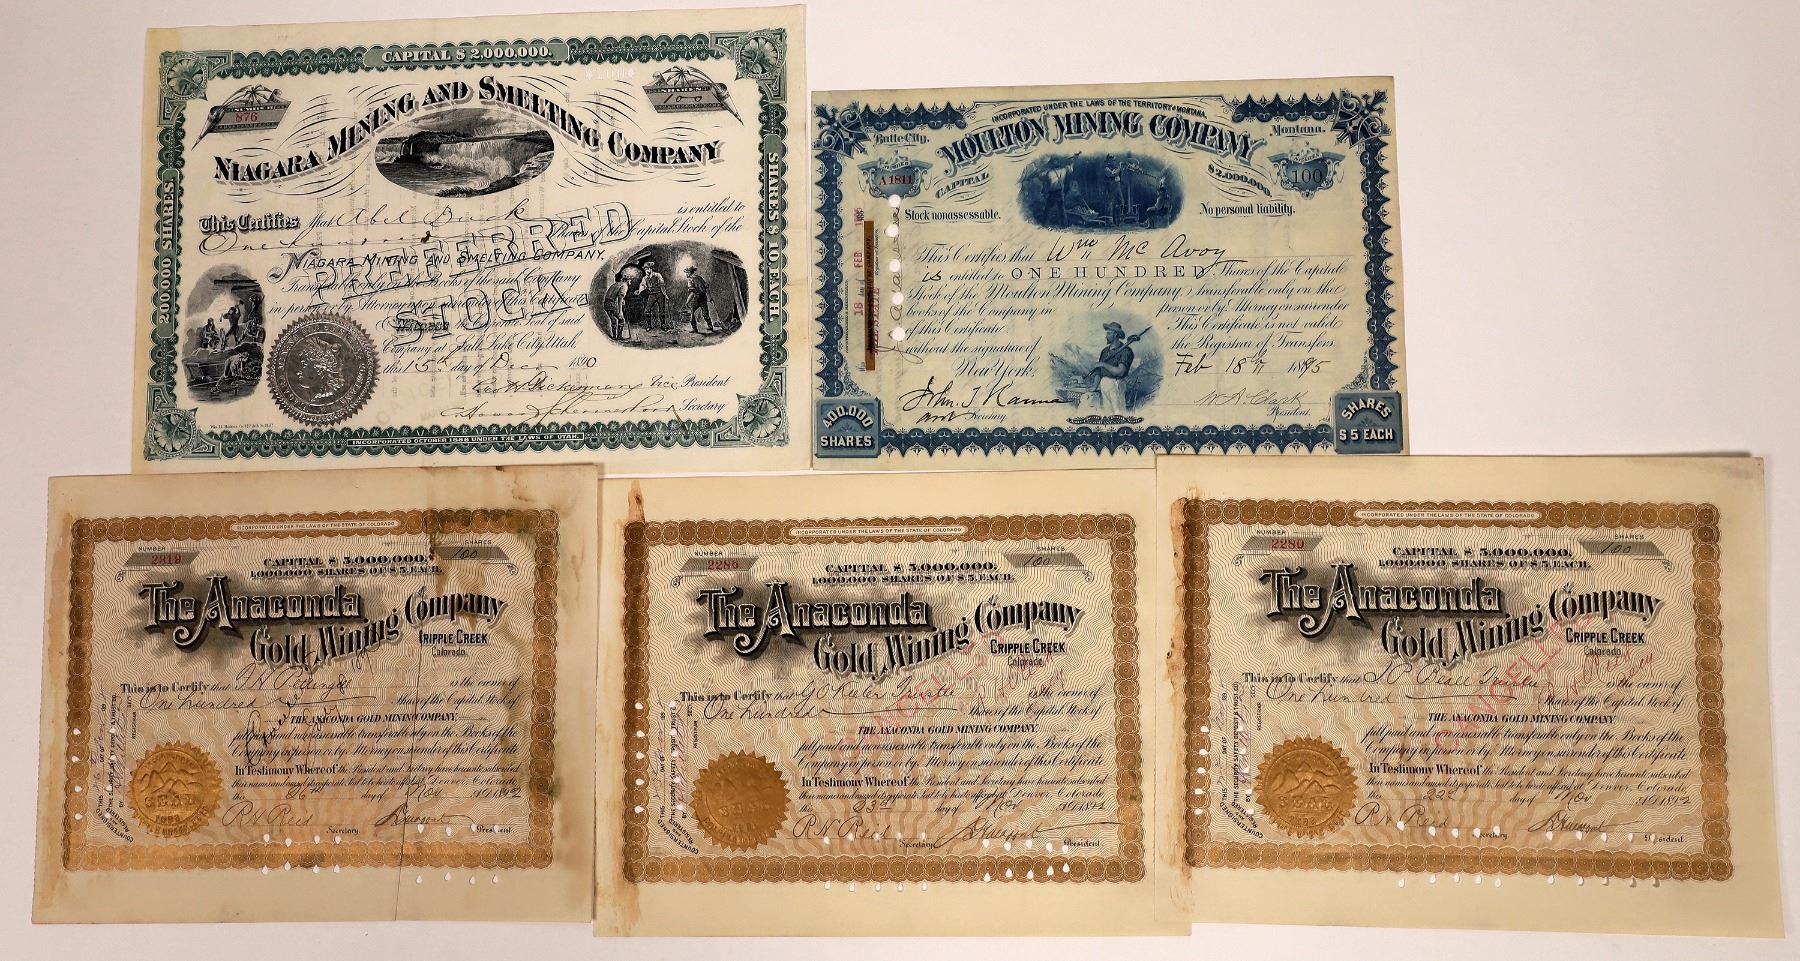 CAPITAL $ 2,000,000.
NUMBER
876
SHARES
100
NIAGARA MINING AND SMELTING COMPANY
200,000 SHARES
SHARES $ 10 EACH
This Certifies that Abel Buck is entitled to
One hundred Shares of the Capital Stock of the
NIAGARA MINING AND SMELTING COMPANY,
PREFERRED
STOCK
Transferable only on the Books of the said Company
in person or by Attorney on surrender of this Certificate
the Corporate Seal of said
Company at Salt Lake City, Utah
this 15 day of Dec 1890
Vice President
Secretary
INCORPORATED OCTOBER 1888 UNDER THE LAWS OF UTAH.
INCORPORATED UNDER THE LAWS OF THE TERRITORY OF MONTANA.
Butte City.
Montana.
MOULTON MINING COMPANY
NUMBER
A1811
CAPITAL
$2,000,000.
SHARES
100
Stock nonassessable.
No personal liability.
18
FEB
This Certifies that Wm Mc Avoy
is entitled to ONE HUNDRED Shares of the Capital
Stock of the Moulton Mining Company, transferable only on the
books of the Company in person or by Attorney on surrender
of this Certificate. This Certificate is not valid
without the signature of the Registrar of Transfers.
New York, Feb 18th 1895
John T Hanna
Secretary.
W A Clark
President.
400,000
SHARES
SHARES
$ 5 EACH
INCORPORATED UNDER THE LAWS OF THE STATE OF COLORADO
NUMBER
2319
SHARES
100
CAPITAL $ 5,000,000.
1,000,000 SHARES OF $ 5 EACH.
The Anaconda
Gold Mining Company
CRIPPLE CREEK
Colorado
This is to Certify that is the owner of
One hundred Shares of the Capital Stock of
THE ANACONDA GOLD MINING COMPANY
full paid and nonassessable transferable only on the Books of the
Company in person or by Attorney on surrender of this Certificate
In Testimony Whereof the President and Secretary have hereunto subscribed
their names and caused its corporate Seal to be hereto affixed at Denver, Colorado,
this 26th day of Nov 1892
SEAL
R H Reid
Secretary.
President.
INCORPORATED UNDER THE LAWS OF THE STATE OF COLORADO
NUMBER
2286
SHARES
100
CAPITAL $ 5,000,000.
1,000,000 SHARES OF $ 5 EACH.
The Anaconda
Gold Mining Company
CRIPPLE CREEK
Colorado
CANCELLED
This is to Certify that Trustee is the owner of
One hundred Shares of the Capital Stock of
THE ANACONDA GOLD MINING COMPANY
full paid and nonassessable transferable only on the Books of the
Company in person or by Attorney on surrender of this Certificate
In Testimony Whereof the President and Secretary have hereunto subscribed
their names and caused its corporate Seal to be hereto affixed at Denver, Colorado,
this 23rd day of Nov
SEAL
R H Reid
Secretary.
President.
INCORPORATED UNDER THE LAWS OF THE STATE OF COLORADO
NUMBER
2280
SHARES
100
CAPITAL $ 5,000,000.
1,000,000 SHARES OF $ 5 EACH.
The Anaconda
Gold Mining Company
CRIPPLE CREEK
Colorado
CANCELLED
This is to Certify that Trustee is the owner of
One hundred Shares of the Capital Stock of
THE ANACONDA GOLD MINING COMPANY
full paid and nonassessable transferable only on the Books of the
Company in person or by Attorney on surrender of this Certificate
In Testimony Whereof the President and Secretary have hereunto subscribed
their names and caused its corporate Seal to be hereto affixed at Denver, Colorado,
this 22d day of Nov 1892
SEAL
R H Reid
Secretary.
President